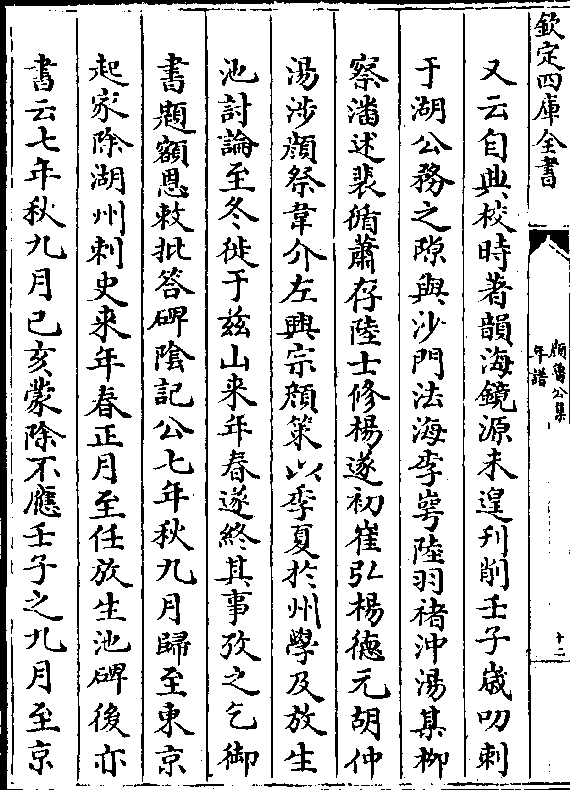 欽定四庫全書
顔魯公集
年譜
十二
又云自典校時著韻海鏡源未遑刋削壬子歳叨刺
于湖公務之隙與沙門法海李崿陸羽禇沖湯某柳
察潘述裴循蕭存陸士修楊遂初崔弘楊徳元胡仲
湯涉顔祭韋介左興宗顔策以季夏於州學及放生
池討論至冬徙于兹山来年春遂終其事攷之乞御
書題額恩敕批答碑隂記公七年秋九月歸至東京
起家除湖州刺史来年春正月至任放生池碑後亦
書云七年秋九月己亥蒙除不應壬子之九月至京